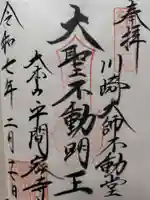 奉拝
川崎大師不動堂
大聖不動明王
大本山平間寺
令和七年二月